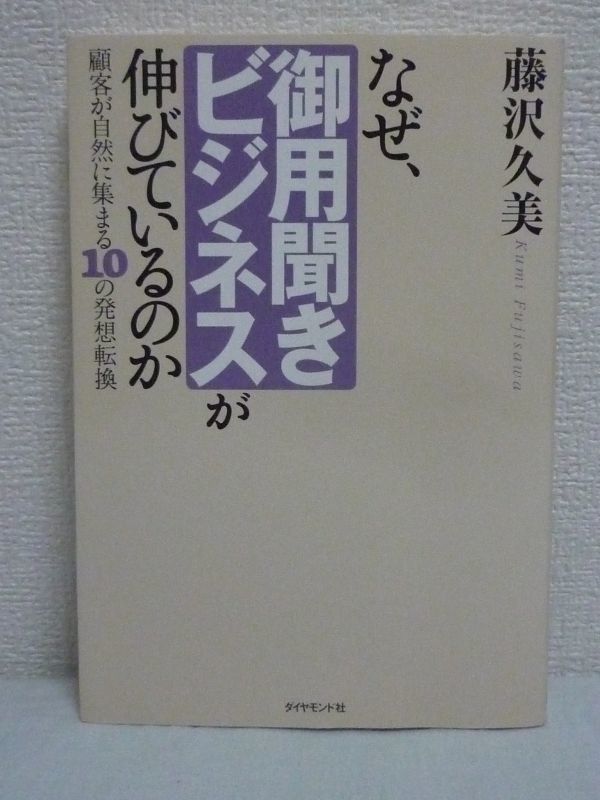 藤沢久美
Kumi Fujisawa
なぜ、
御用聞き
ビジネスが
伸びているのか
顧客が自然に集まる10の発想転換
ダイヤモンド社